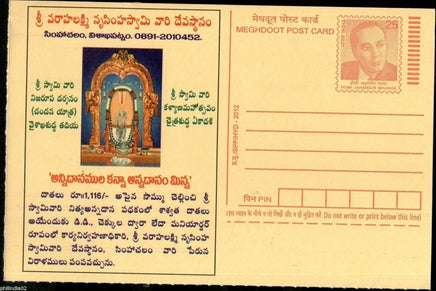 శ్రీ వరాహలక్ష్మి నృసింహస్వామి వారి దేవస్థానం
సింహాచలం, విశాఖపట్నం. 0891-2010452.
శ్రీ స్వామి వారి
నిజరూప దర్శనం
(చందన యాత్ర)
వైశాఖశుద్ధ తదియ
శ్రీ స్వామి వారి
కళ్యాణమహోత్సవం
చైత్రశుద్ధ ఏకాదశి
'అన్నిదానముల కన్నా అన్నదానం మిన్న'
దాతలు రూ॥1,116/- ఆపైన సొమ్ము చెల్లించి శ్రీ
స్వామివారి నిత్యఅన్నదాన పథకంలో శాశ్వత దాతలు
అయేందుకు డి.డి., చెక్కుల ద్వారా లేదా మనియార్డర్
రూపంలో కార్యనిర్వహణాధికారి, శ్రీ వరాహలక్ష్మి నృసింహ
స్వామివారి దేవస్థానం, సింహాచలం వారి పేరున
విరాళములు పంపవచ్చును.
मेघदूत पोस्ट कार्ड
MEGHDOOT POST CARD
भारत INDIA
25
होमी जहाँगीर भाभा
HOMI JEHANGIR BHABHA
प्र.मु./SPP/HYD - 2012
पिन PIN
(इस लाइन के नीचे न तो लिखें और न ही मुद्रित करें Do not write or print below this line)
philindia02